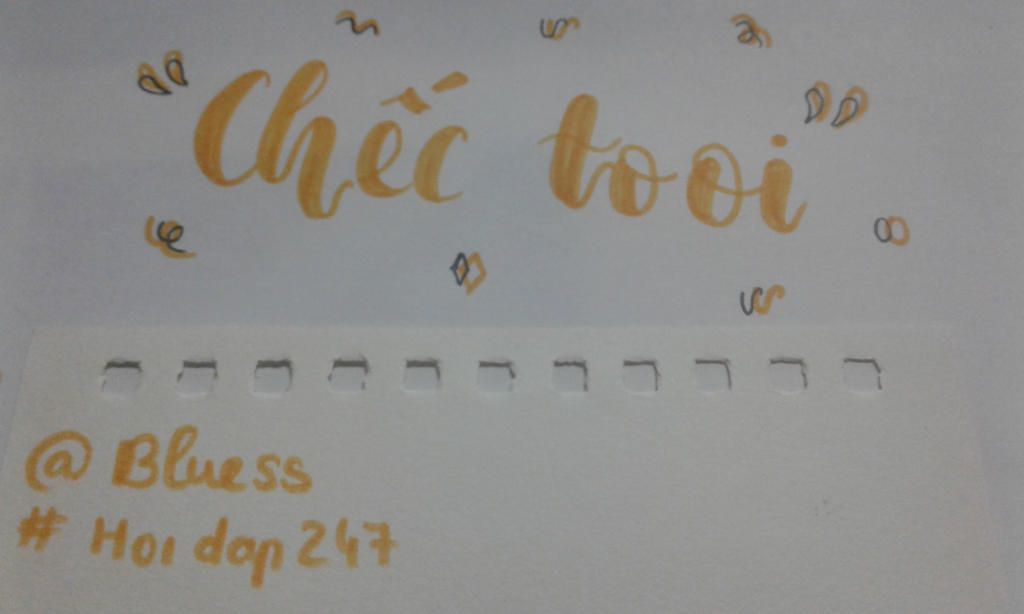 "Chếc tooi"
@ Bluess
# Hoidap247